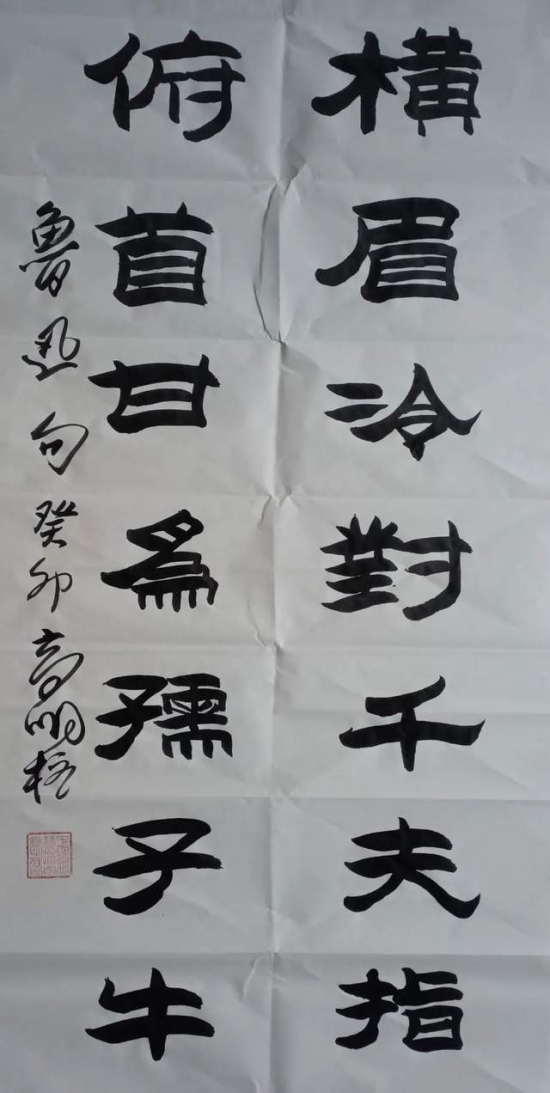 橫眉冷對千夫指
俯首甘為孺子牛
魯迅句癸卯高明